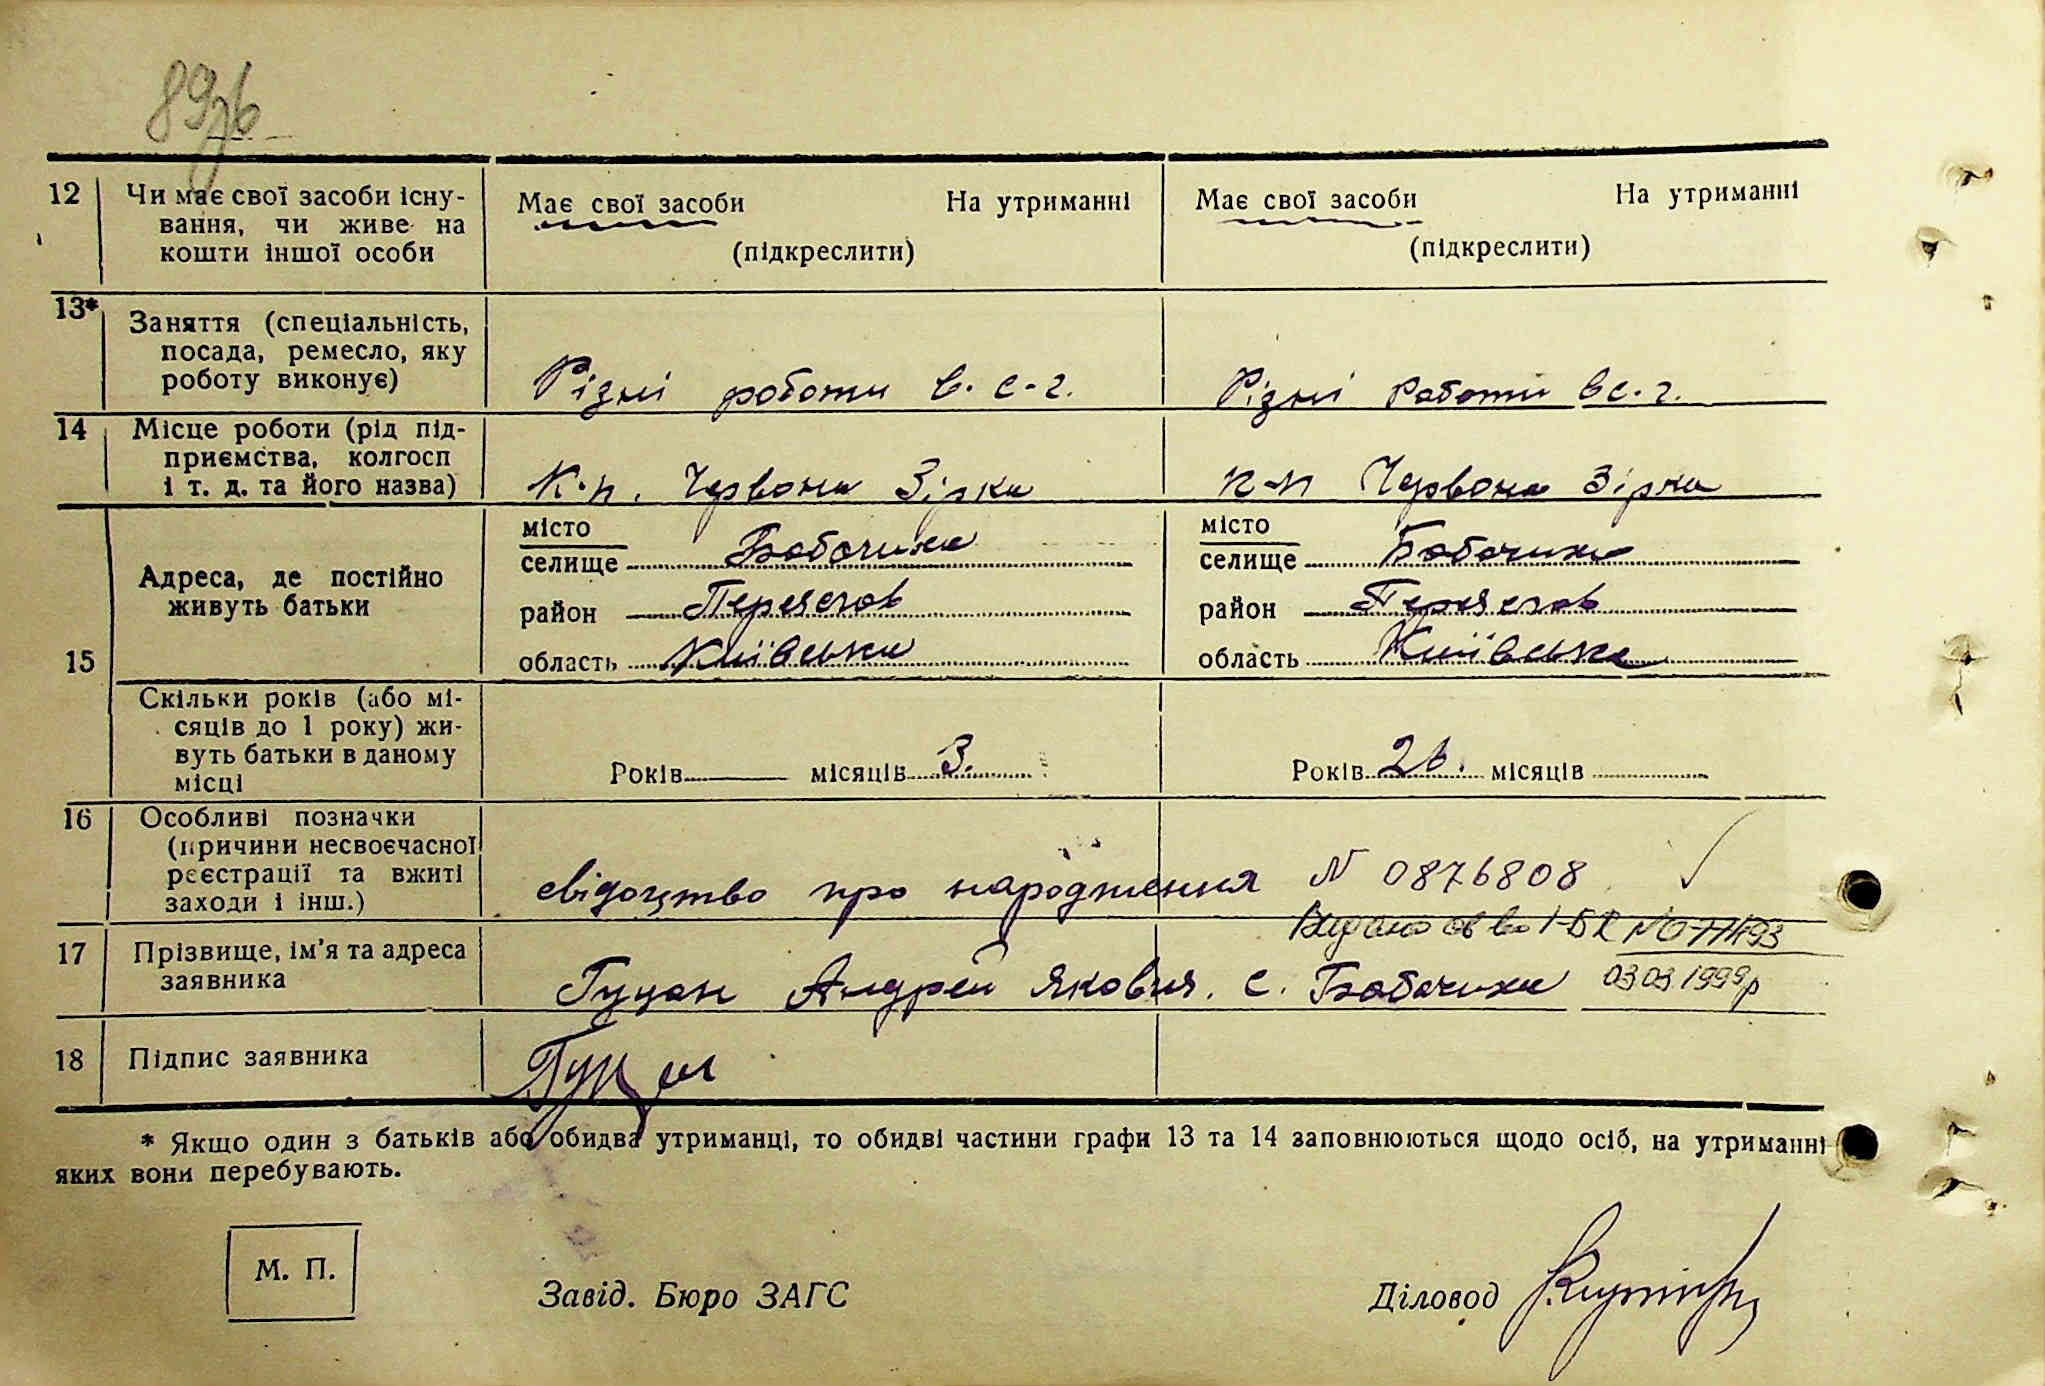 89зв
12 Чи має свої засоби існу- Має свої засоби На утриманні Має свої засоби На утриманні
вання, чи живе на
кошти іншої особи (підкреслити) (підкреслити)
13* Заняття (спеціальність,
посада, ремесло, яку
роботу виконує) Різні роботи в. с-г. Різні работи в с.-г.
14 Місце роботи (рід під-
приємства, колгосп
і т. д. та його назва) К-п. Червона Зірка к-п Червона Зірка
місто місто
селище Бабачиха селище Бабачиха
Адреса, де постійно
живуть батьки район Переяслов район Переяслов
15 область Київська область Київська
Скільки років (або мі-
сяців до 1 року) жи-
вуть батьки в даному Років — місяців 3. Років 26. місяців
місці
16 Особливі позначки
(причини несвоєчасної
реєстрації та вжиті свідоцтво про народження N 0876808
заходи і інш.)
Видано св во І-БК №077493
17 Прізвище, ім'я та адреса
заявника Гуцан Андрей Якович. С. Бабачиха 03 03 1999р
18 Підпис заявника Гуцан
* Якщо один з батьків або обидва утриманці, то обидві частини графи 13 та 14 заповнюються щодо осіб, на утриманні
яких вони перебувають.
М. П.
Завід. Бюро ЗАГС Діловод